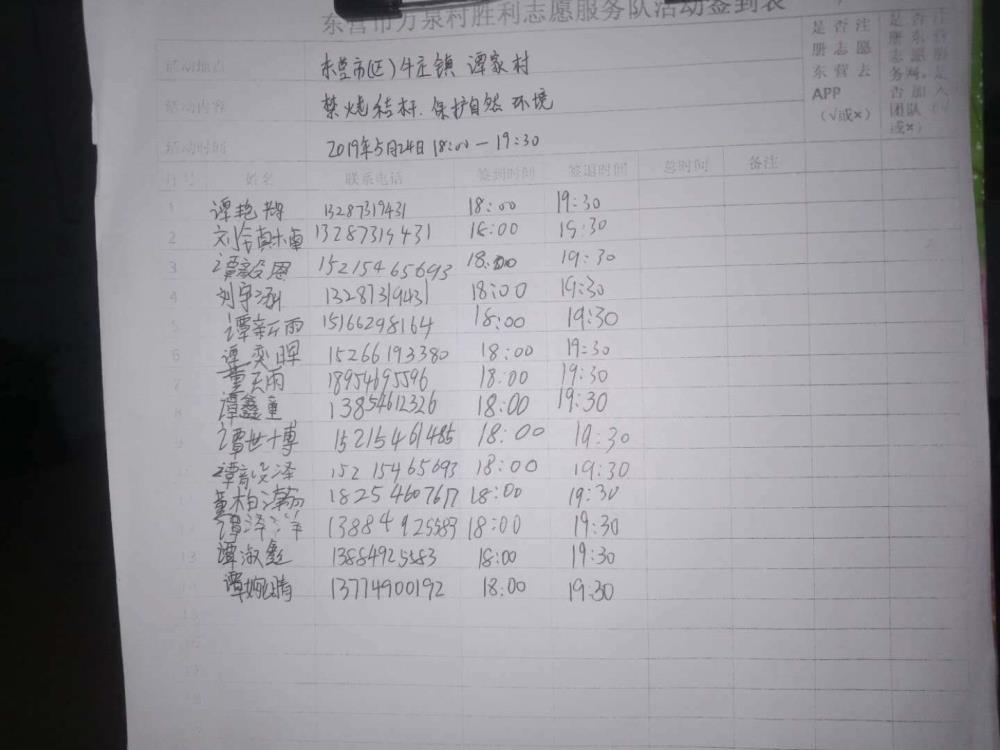 东营市万泉村胜利志愿服务队活动签到表
活动地点 东营市(区)牛庄镇 谭家村
活动内容 禁烧秸秆.保护自然环境
活动时间 2019年5月24日 18:00—19:30
是否注册志愿东营去APP（√或×）
序号 姓名 联系电话 签到时间 签退时间 总时间 备注
1 谭艳 13287319431 18:00 19:30
2 刘 13287319431 18:00 19:30
3 谭毅恩 15215465693 18:00 19:30
4 刘宇涵 13287319431 18:00 19:30
5 谭新雨 15166298164 18:00 19:30
6 谭奕晖 15266193380 18:00 19:30
7 董天雨 18954695596 18:00 19:30
8 谭鑫童 13854612326 18:00 19:30
谭世博 15215461485 18:00 19:30
谭毅泽 15215465693 18:00 19:30
董柏瀚 18254607617 18:00 19:30
谭泽洋 13884925583 18:00 19:30
13 谭淑 13884925583 18:00 19:30
谭婉晴 13774900192 18:00 19:30